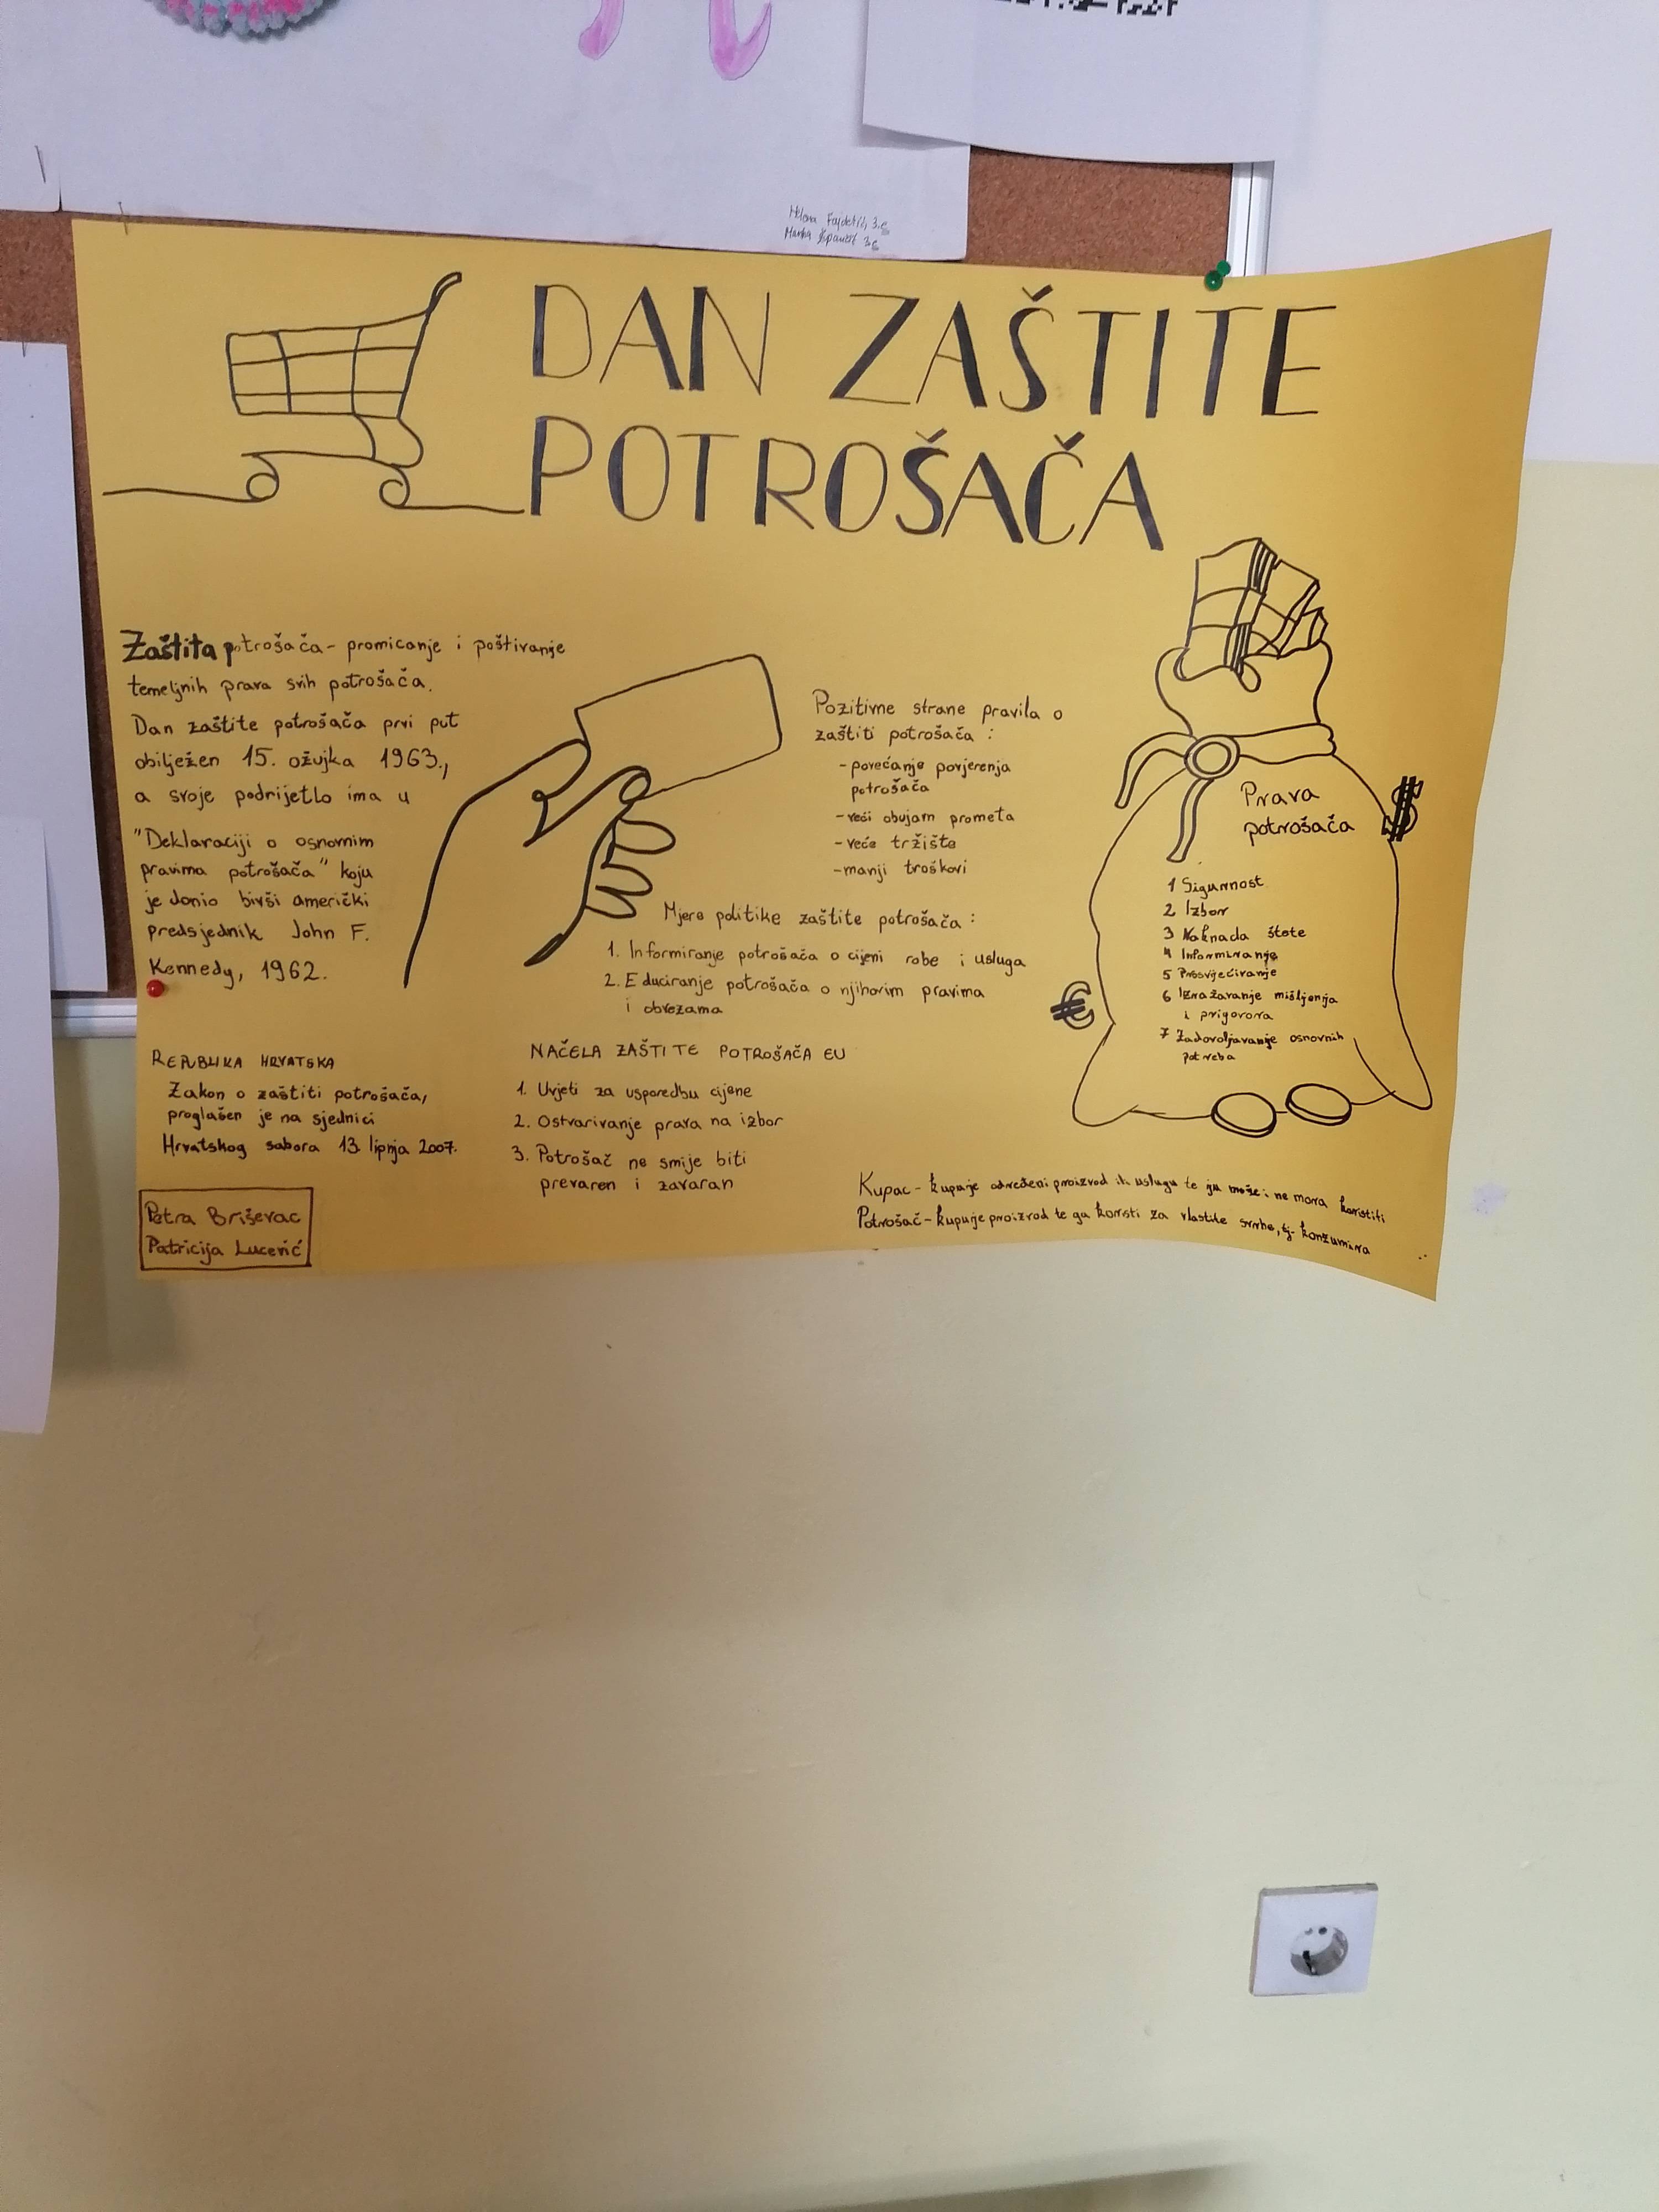 Milena Fajdetić, 3.g
Marika Španić 3.g
DAN ZAŠTITE
POTROŠAČA
Zaštita potrošača - promicanje i poštivanje
temeljnih prava svih potrošača.
Dan zaštite potrošača prvi put
obilježen 15. ožujka 1963.,
a svoje podrijetlo ima u
"Deklaraciji o osnovnim
pravima potrošača" koju
je donio bivši američki
predsjednik John F.
Kennedy, 1962.
Pozitivne strane pravila o
zaštiti potrošača :
- povećanje povjerenja
potrošača
- veći obujam prometa
- veće tržište
- manji troškovi
Mjere politike zaštite potrošača :
1. Informiranje potrošača o cijeni robe i usluga
2. Educiranje potrošača o njihovim pravima
i obvezama
Prava
potrošača
$
1 Sigurnost
2 Izbor
3 Naknada štete
4 Informiranje
5 Prosvjećivanje
6 Izražavanje mišljenja
i prigovora
7 Zadovoljavanje osnovnih
potreba
€
REPUBLIKA HRVATSKA
Zakon o zaštiti potrošača,
proglašen je na sjednici
Hrvatskog sabora 13. lipnja 2007.
NAČELA ZAŠTITE POTROŠAČA EU
1. Uvjeti za usporedbu cijene
2. Ostvarivanje prava na izbor
3. Potrošač ne smije biti
prevaren i zavaran
Petra Briševac
Patricija Lucević
Kupac - kupuje određeni proizvod ili uslugu te ju može i ne mora koristiti
Potrošač - kupuje proizvod te ga koristi za vlastite svrhe, tj. konzumira